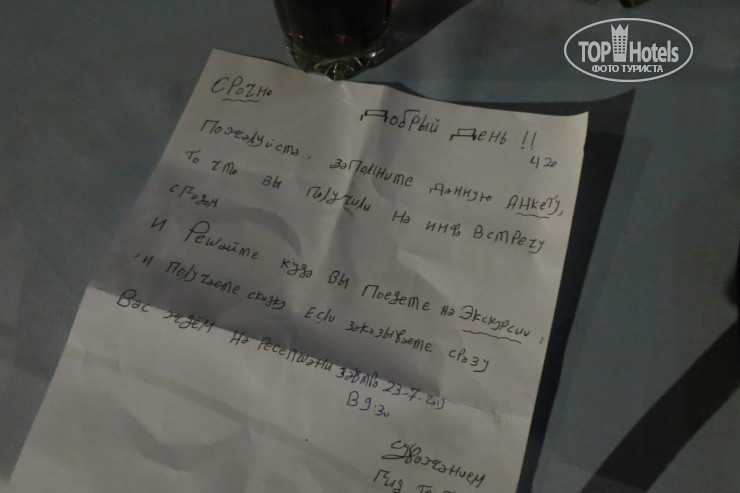 TOPHotels
ФОТО ТУРИСТА
СРОЧно
Добрый День !!
420
Пожалуйста, заполните данную АНкету,
То что вы получили на инфо встречу
с гидом
И Решайте куда вы Поедете на Экскурсии.
,и получаете скидку Если заказываете сразу
Вас ждем на ресепшани завтра 23-7-
В 9:30
суважанием
Гид